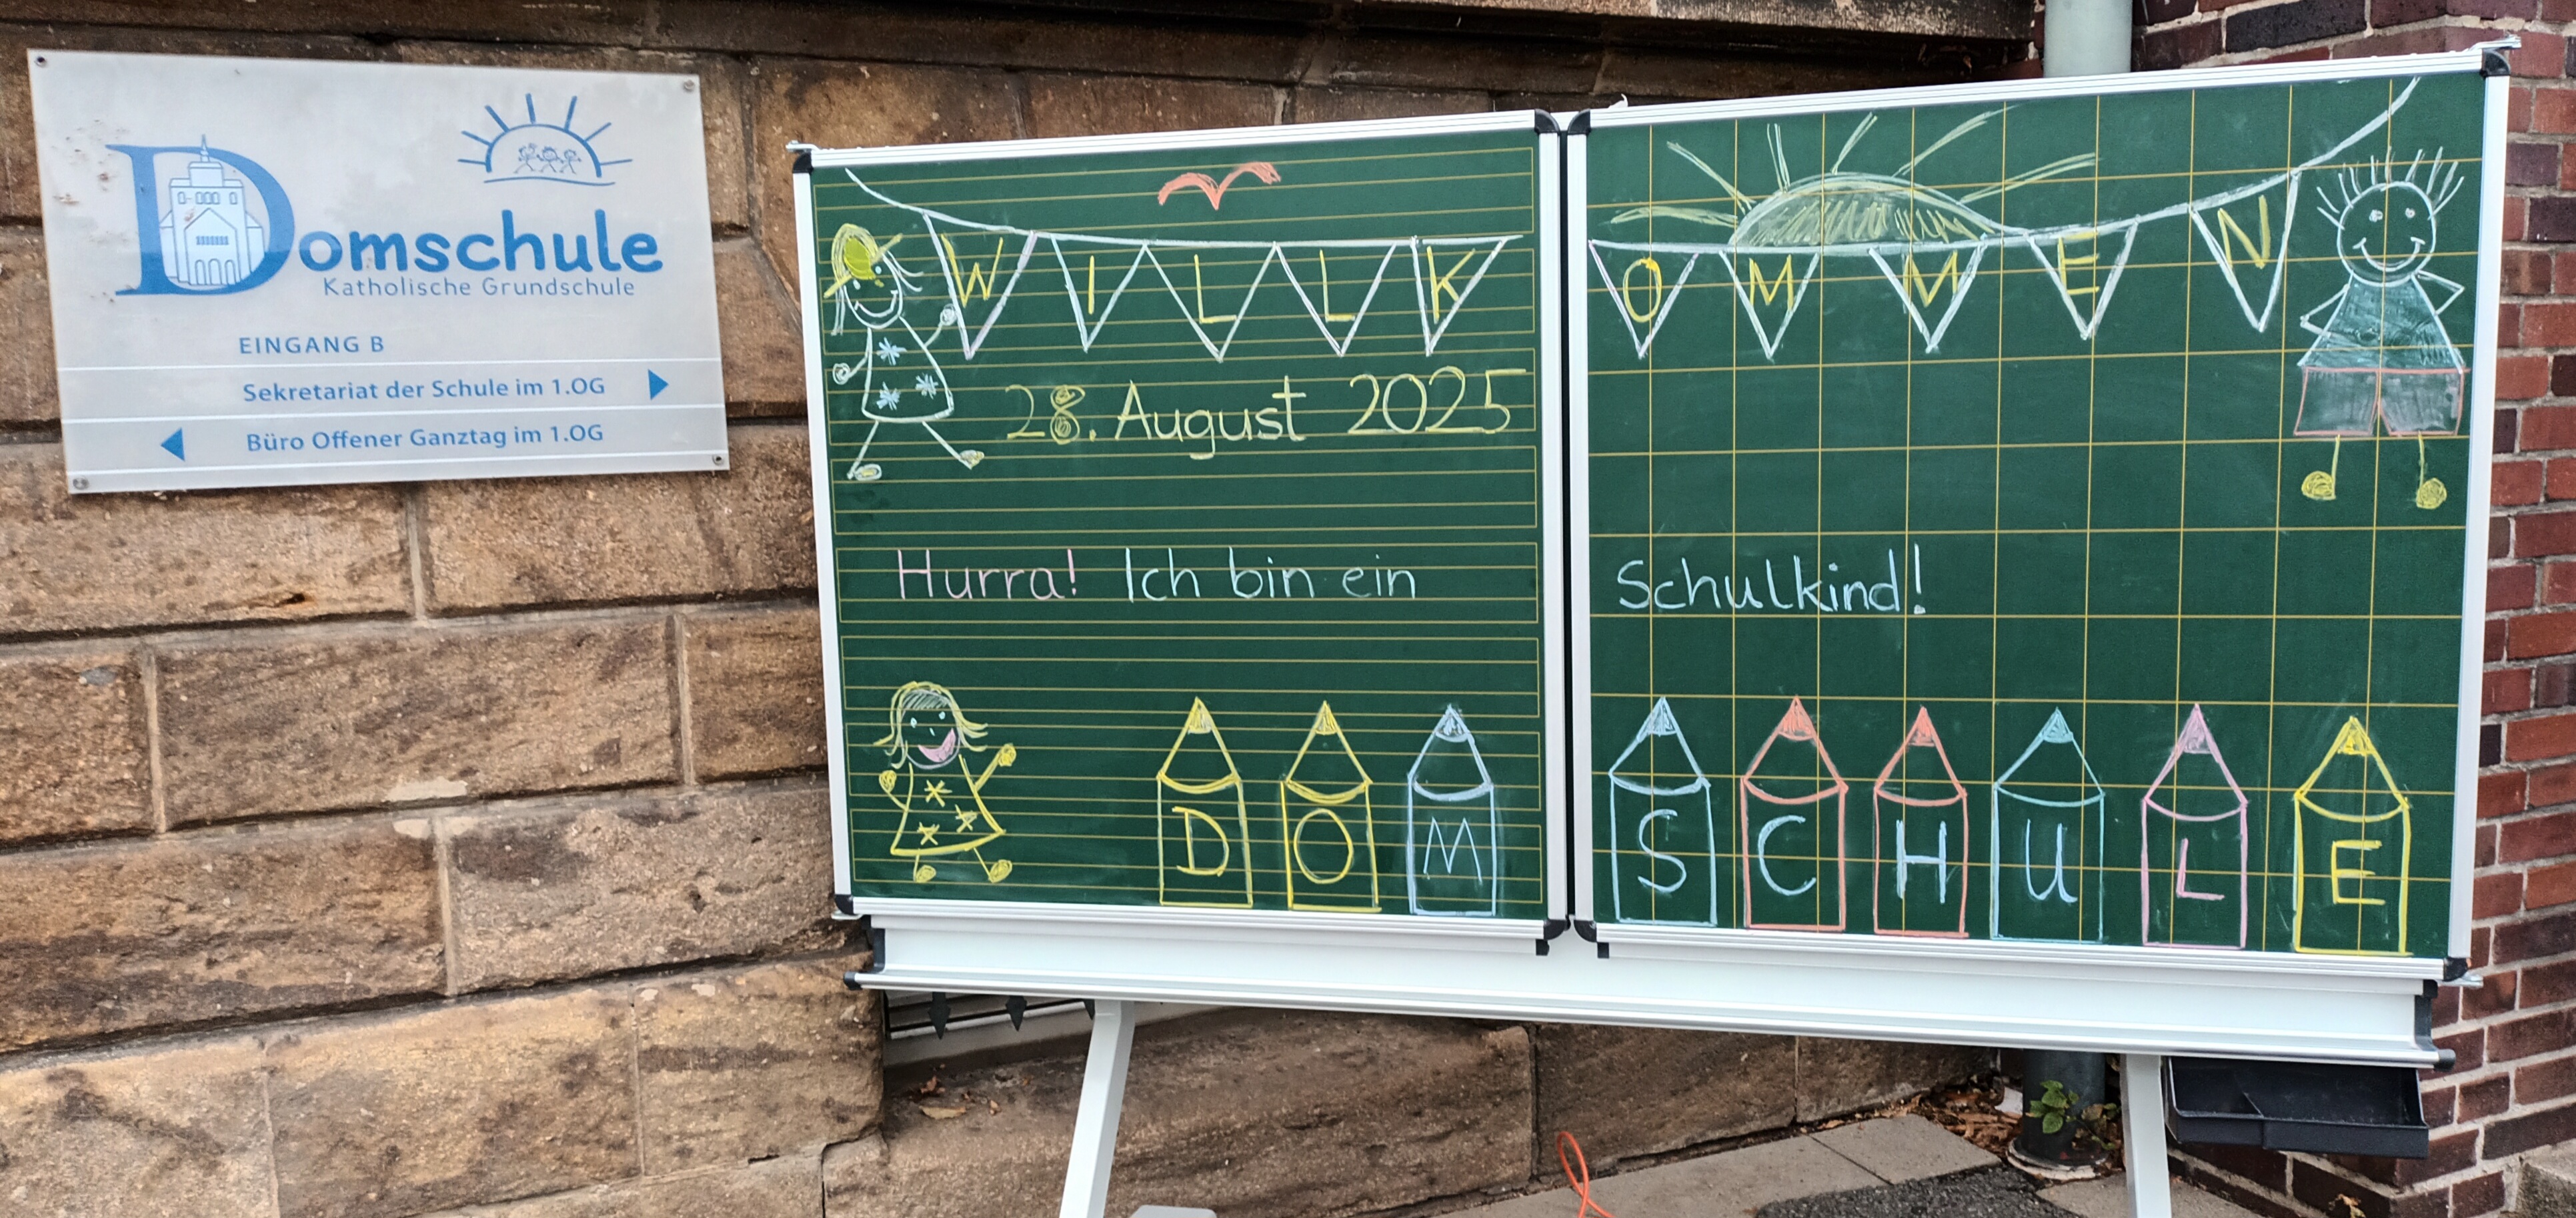 Domschule
Katholische Grundschule
EINGANG B
Sekretariat der Schule im 1.OG
Büro Offener Ganztag im 1.OG
WILLKOMMEN
28. August 2025
Hurra! Ich bin ein Schulkind!
DOM SCHULE